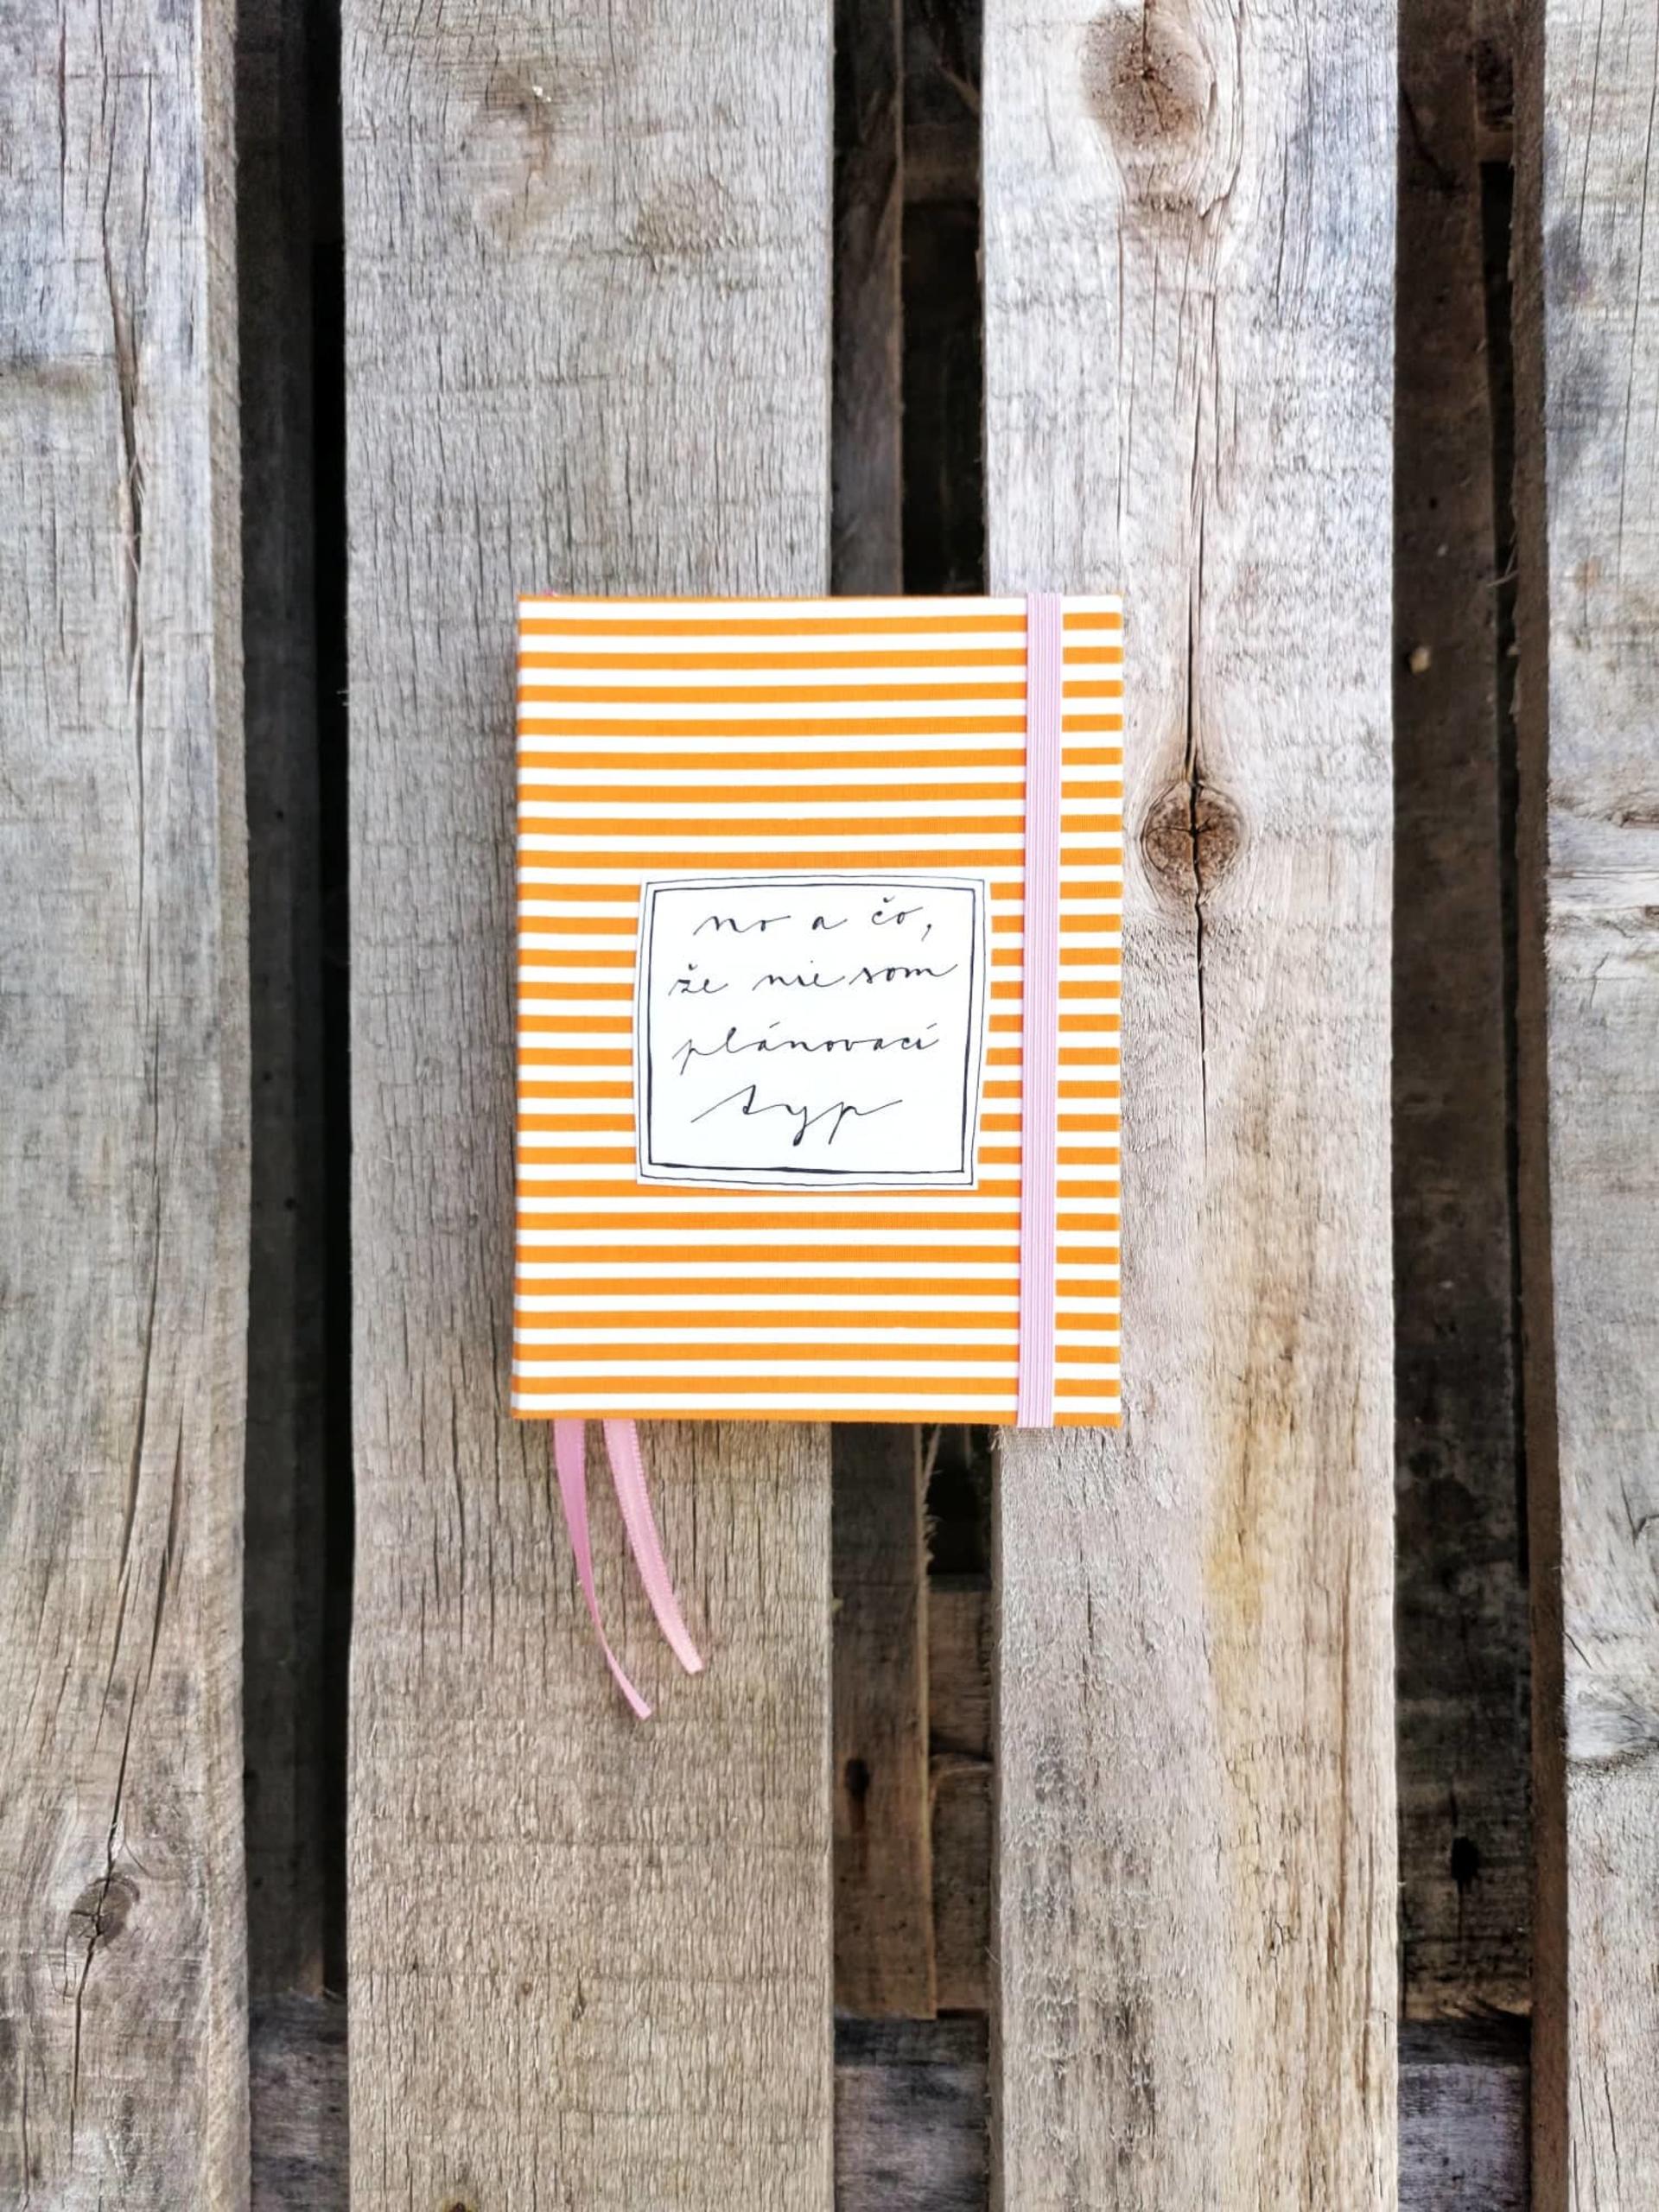 no a čo,
že nie som
plánovací
typ